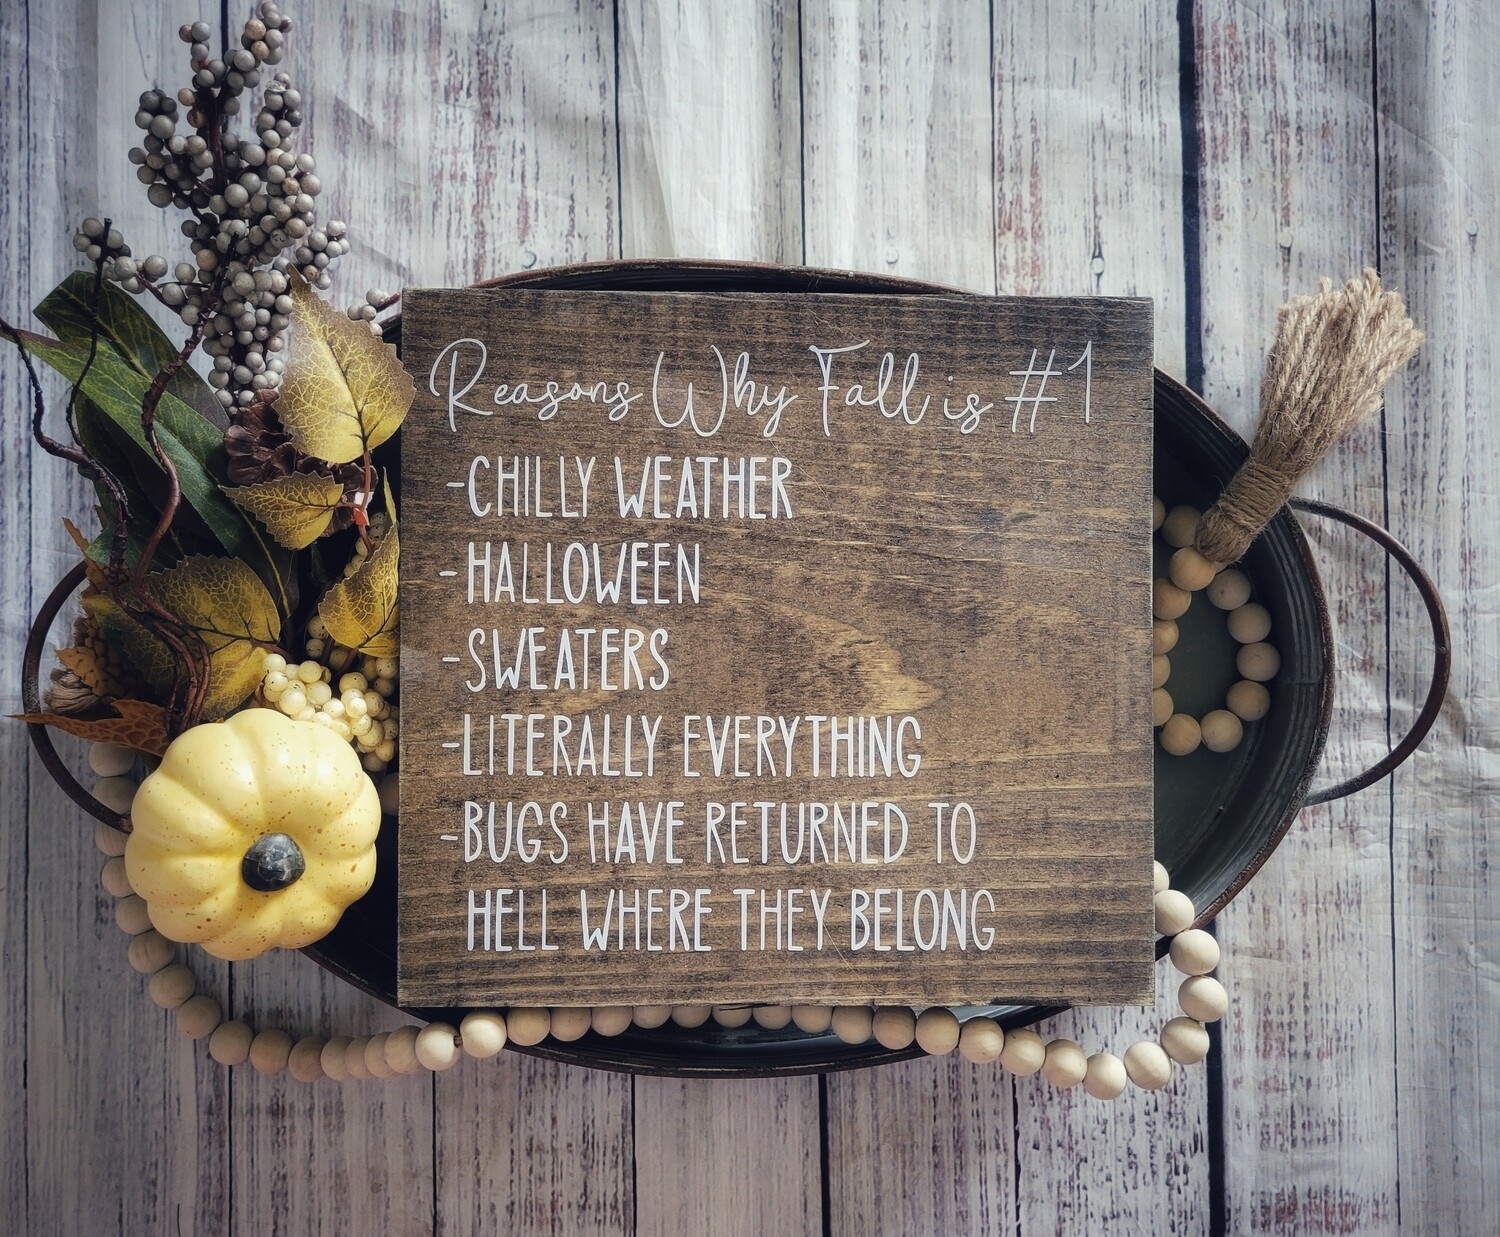 Reasons Why Fall is #1
-CHILLY WEATHER
-HALLOWEEN
-SWEATERS
-LITERALLY EVERYTHING
-BUGS HAVE RETURNED TO
HELL WHERE THEY BELONG